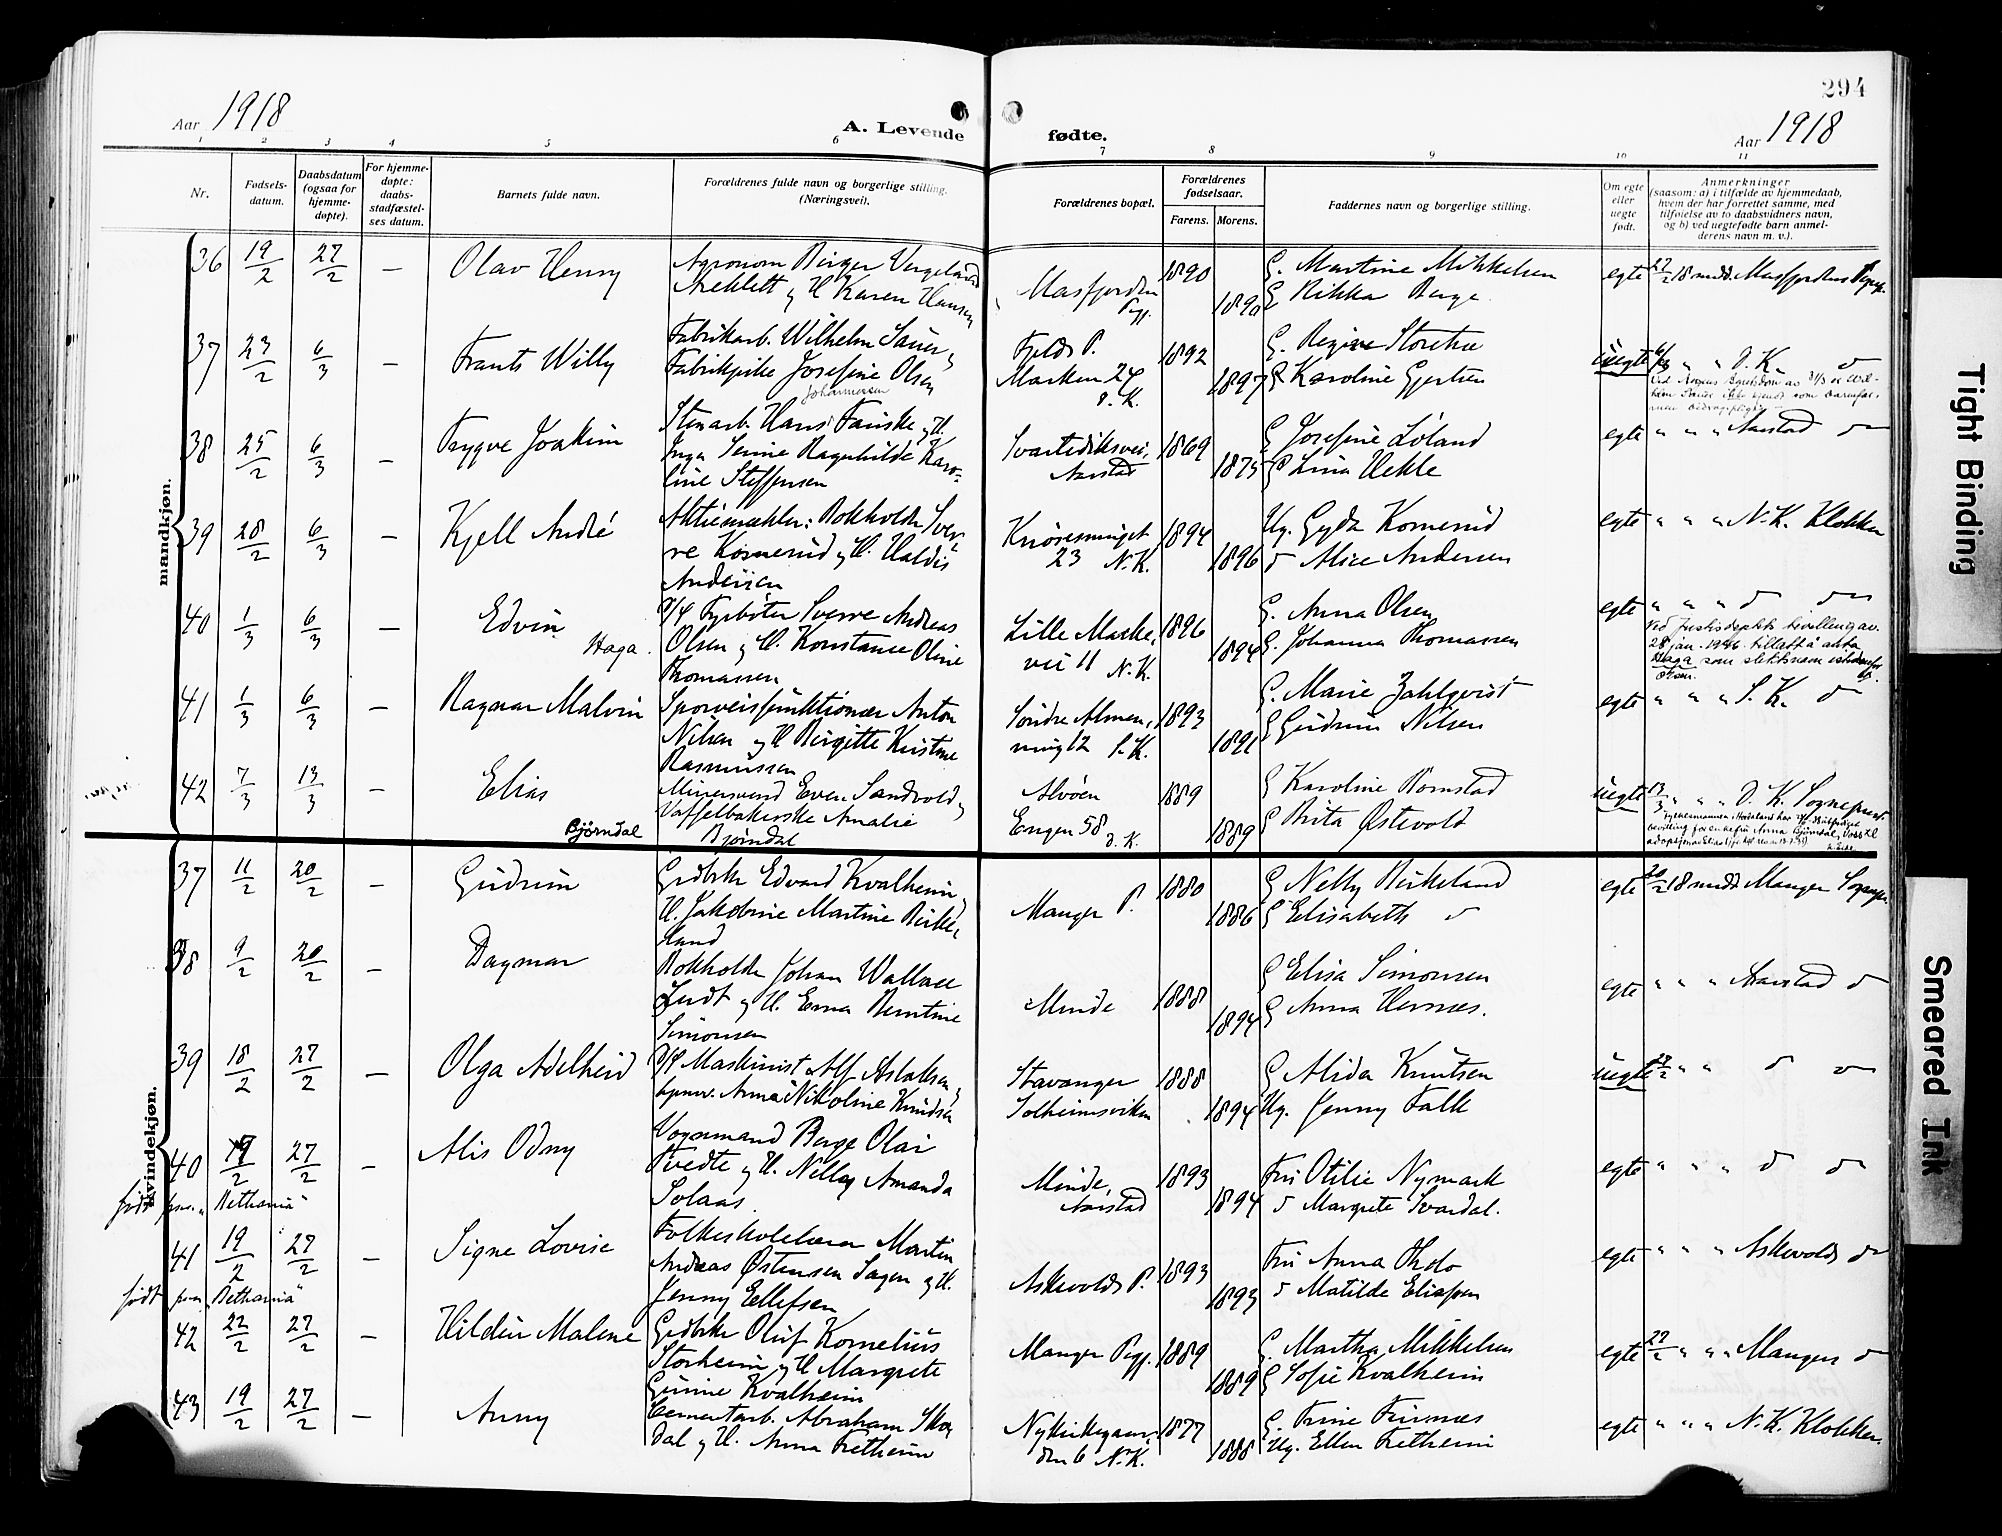 294
Aar 1918
A. Levende fødte.
Aar 1918
1 2 3 4 5 6 7 8 9 10 11
Nr.
Fødsels-
datum.
Daabsdatum
(ogsaa for
hjemme-
døpte).
For hjemme-
døpte:
daabs-
stadfæstel-
ses datum.
Barnets fulde navn.
Forældrenes fulde navn og borgerlige stilling.
(Næringsvei).
Forældrenes bopæl.
Forældrenes
fødselsaar.
Farens. Morens.
Faddernes navn og borgerlige stilling.
Om egte
eller
uegte
født.
Anmerkninger
(saasom: a) i tilfælde av hjemmedaab,
hvem der har forrettet samme, med
tilføielse av to daabsvidners navn,
og b) ved uegtefødte barn anmel-
derens navn m. v.).
mandkjøn.
36 19/2 27/2 — Olav Henny
Agronom Birger Vergeland
og H Karen Hansen
Masfjorden
Pgj.
1890
1890
G. Martine Mikkelsen
G Rikka Berge
egte
27/2 18 medd. Masfjordens
37 23/2 6/3 — Frants Willy
Fabrikarb. Wilhelm Sauer og
Fabrikpike Josefine Olsen
Johannessen
Fjelds P.
Marken 24
D. K.
1892
1897
G. Regine Storetve
G Karoline Gjertsen
uegte
6/3 " " D. K.
38 25/2 6/3 — Trygve Joakim
Stenarb. Hans Fauske og H.
Inga Serine Ragnhilde Karo-
line Steffensen
Svartediksvei,
Aarstad
1869
1875
G Josefine Loland
G Lina Hekle
egte
" " " Aarstad
39 28/2 6/3 — Kjell André
Aktiemækler: Bokholder Sver-
re Komerud og H. Haldis
Andersen
Knøsesmuget
23 N.K.
1894
1896
Ug. Gyda Komerud
Alice Andersen
egte
" " " N. K. Klokker
40 1/3 6/3 — Edvin
Haga.
Fyrbøter Sverre Andreas
Olsen og H. Konstance Oline
Thomassen
Lille Marke-
vei 11 N. K.
1896
1894
G. Anna Olsen
G. Johanna Thomassen
egte
Ved justisdeptets bevilling av
28 jan. 1946 tillatt å anta
Haga som slektsnavn istedenfor
Olsen.
41 1/3 6/3 — Ragnar Malvin
Sporveisfunktionær Anton
Nilsen og H Birgitte Kristine
Rasmussen
Søndre Almen-
ning 12 S. K.
1893
1891
G. Marie Zahlqvist
G Gudrun Nilsen
egte
" " " S. K.
42 7/3 13/3 — Elias
Bjørndal
Minersvend Even Sandvold og
Vaffelbakerske Amalie
Bjørndal
Alvøen
Engen 58
D. K.
1889
1889
G Karoline Romstad
G Brita Østevold
uegte
13/3 " " D. K. Sogneprest
kvindekjøn.
37 11/2 20/2 — Gudrun
Grdbrk Edvard Kvalheim og
H. Jakobine Martine Birke-
land
Manger P.
1880
1886
G Nelly Birkeland
G Elisabeth
egte
20/2 18 medd Manger Sognepr.
38 9/2 20/2 — Dagmar
Bokholder Johan Wallace
Lindt og H. Erna Berntine
Simonsen
Minde
1888
1894
G Elisa Simonsen
G Anna Hermes.
egte
" " " Aarstad
39 18/2 27/2 — Olga Adelheid
Maskinist Alf Aslaksen,
Anna Nikoline Knudsen
Stavanger
Solheimsviken
1888
1894
G Alida Knutsen
Ug. Jenny Falk
uegte
27/2 " "
40 19/2 27/2 — Alis Odny
født paa „Bethania"
Vognmand Berge Olai
Tvedte og H. Nelly Amanda
Solaas
Minde,
Aarstad
1893
1894
Fru Otilie Nymark
Margrete Svardal.
egte
41 19/2 27/2 — Signe Lovise
født paa „Bethania"
Folkeskolelærer Martin
Andreas Østensen Sagen og H.
Jenny Ellefsen
Askevolds P.
1893
1893
Fru Anna Tholo
Matilde Eliassen
egte
" " " Askevolds
42 22/2 27/2 — Hildur Malene
Grdbrk Oluf Kornelius
Storheim og H Margrete
Gurine Kvalheim
Manger Pgj.
1889
1889
G. Martha Mikkelsen
G Sofie Kvalheim
egte
27/2 " " " Mangers
43 19/2 27/2 — Anny
Cementarb. Abraham Skog
dal og H. Anna Fretheim
Nykirkegaar-
den 6 N. K.
1877
1888
G. Trine Furnæs
Ug. Ellen Fretheim
egte
" " " N. K. Klokker.
Tight Binding
Smeared Ink